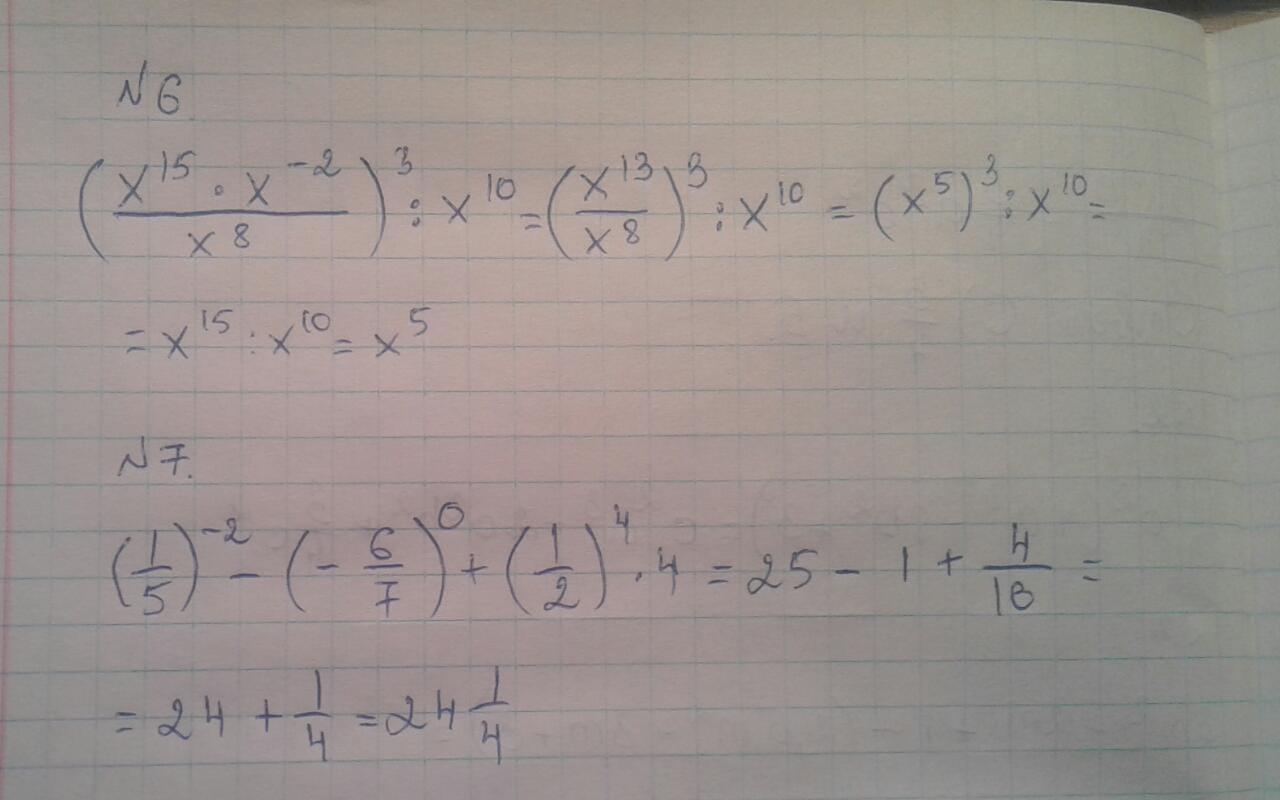 N 6
(x^15 · x^-2 / x^8)^3 : x^10 = (x^13 / x^8)^3 : x^10 = (x^5)^3 : x^10 =
= x^15 : x^10 = x^5
N 7.
(1/5)^-2 - (- 6/7)^0 + (1/2)^4 · 4 = 25 - 1 + 4/16 =
= 24 + 1/4 = 24 1/4